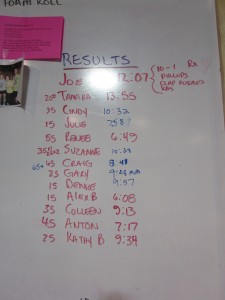 FOAM ROLL
RESULTS
JOE 12:07
10-1 RX
PULLUPS
CLAP PUSHUPS
KBS
20# TAMARA 13:55
35 CINDY 10:32
15 JULIE 7:58
55 RENEE 6:49
SUZANNE 10:39
45 CRAIG 8:48
25 GARY
15 DENISE 9:57
15 ALEX B 6:08
35 COLLEEN 9:13
45 ANTON 7:17
25 KATHY B 9:34